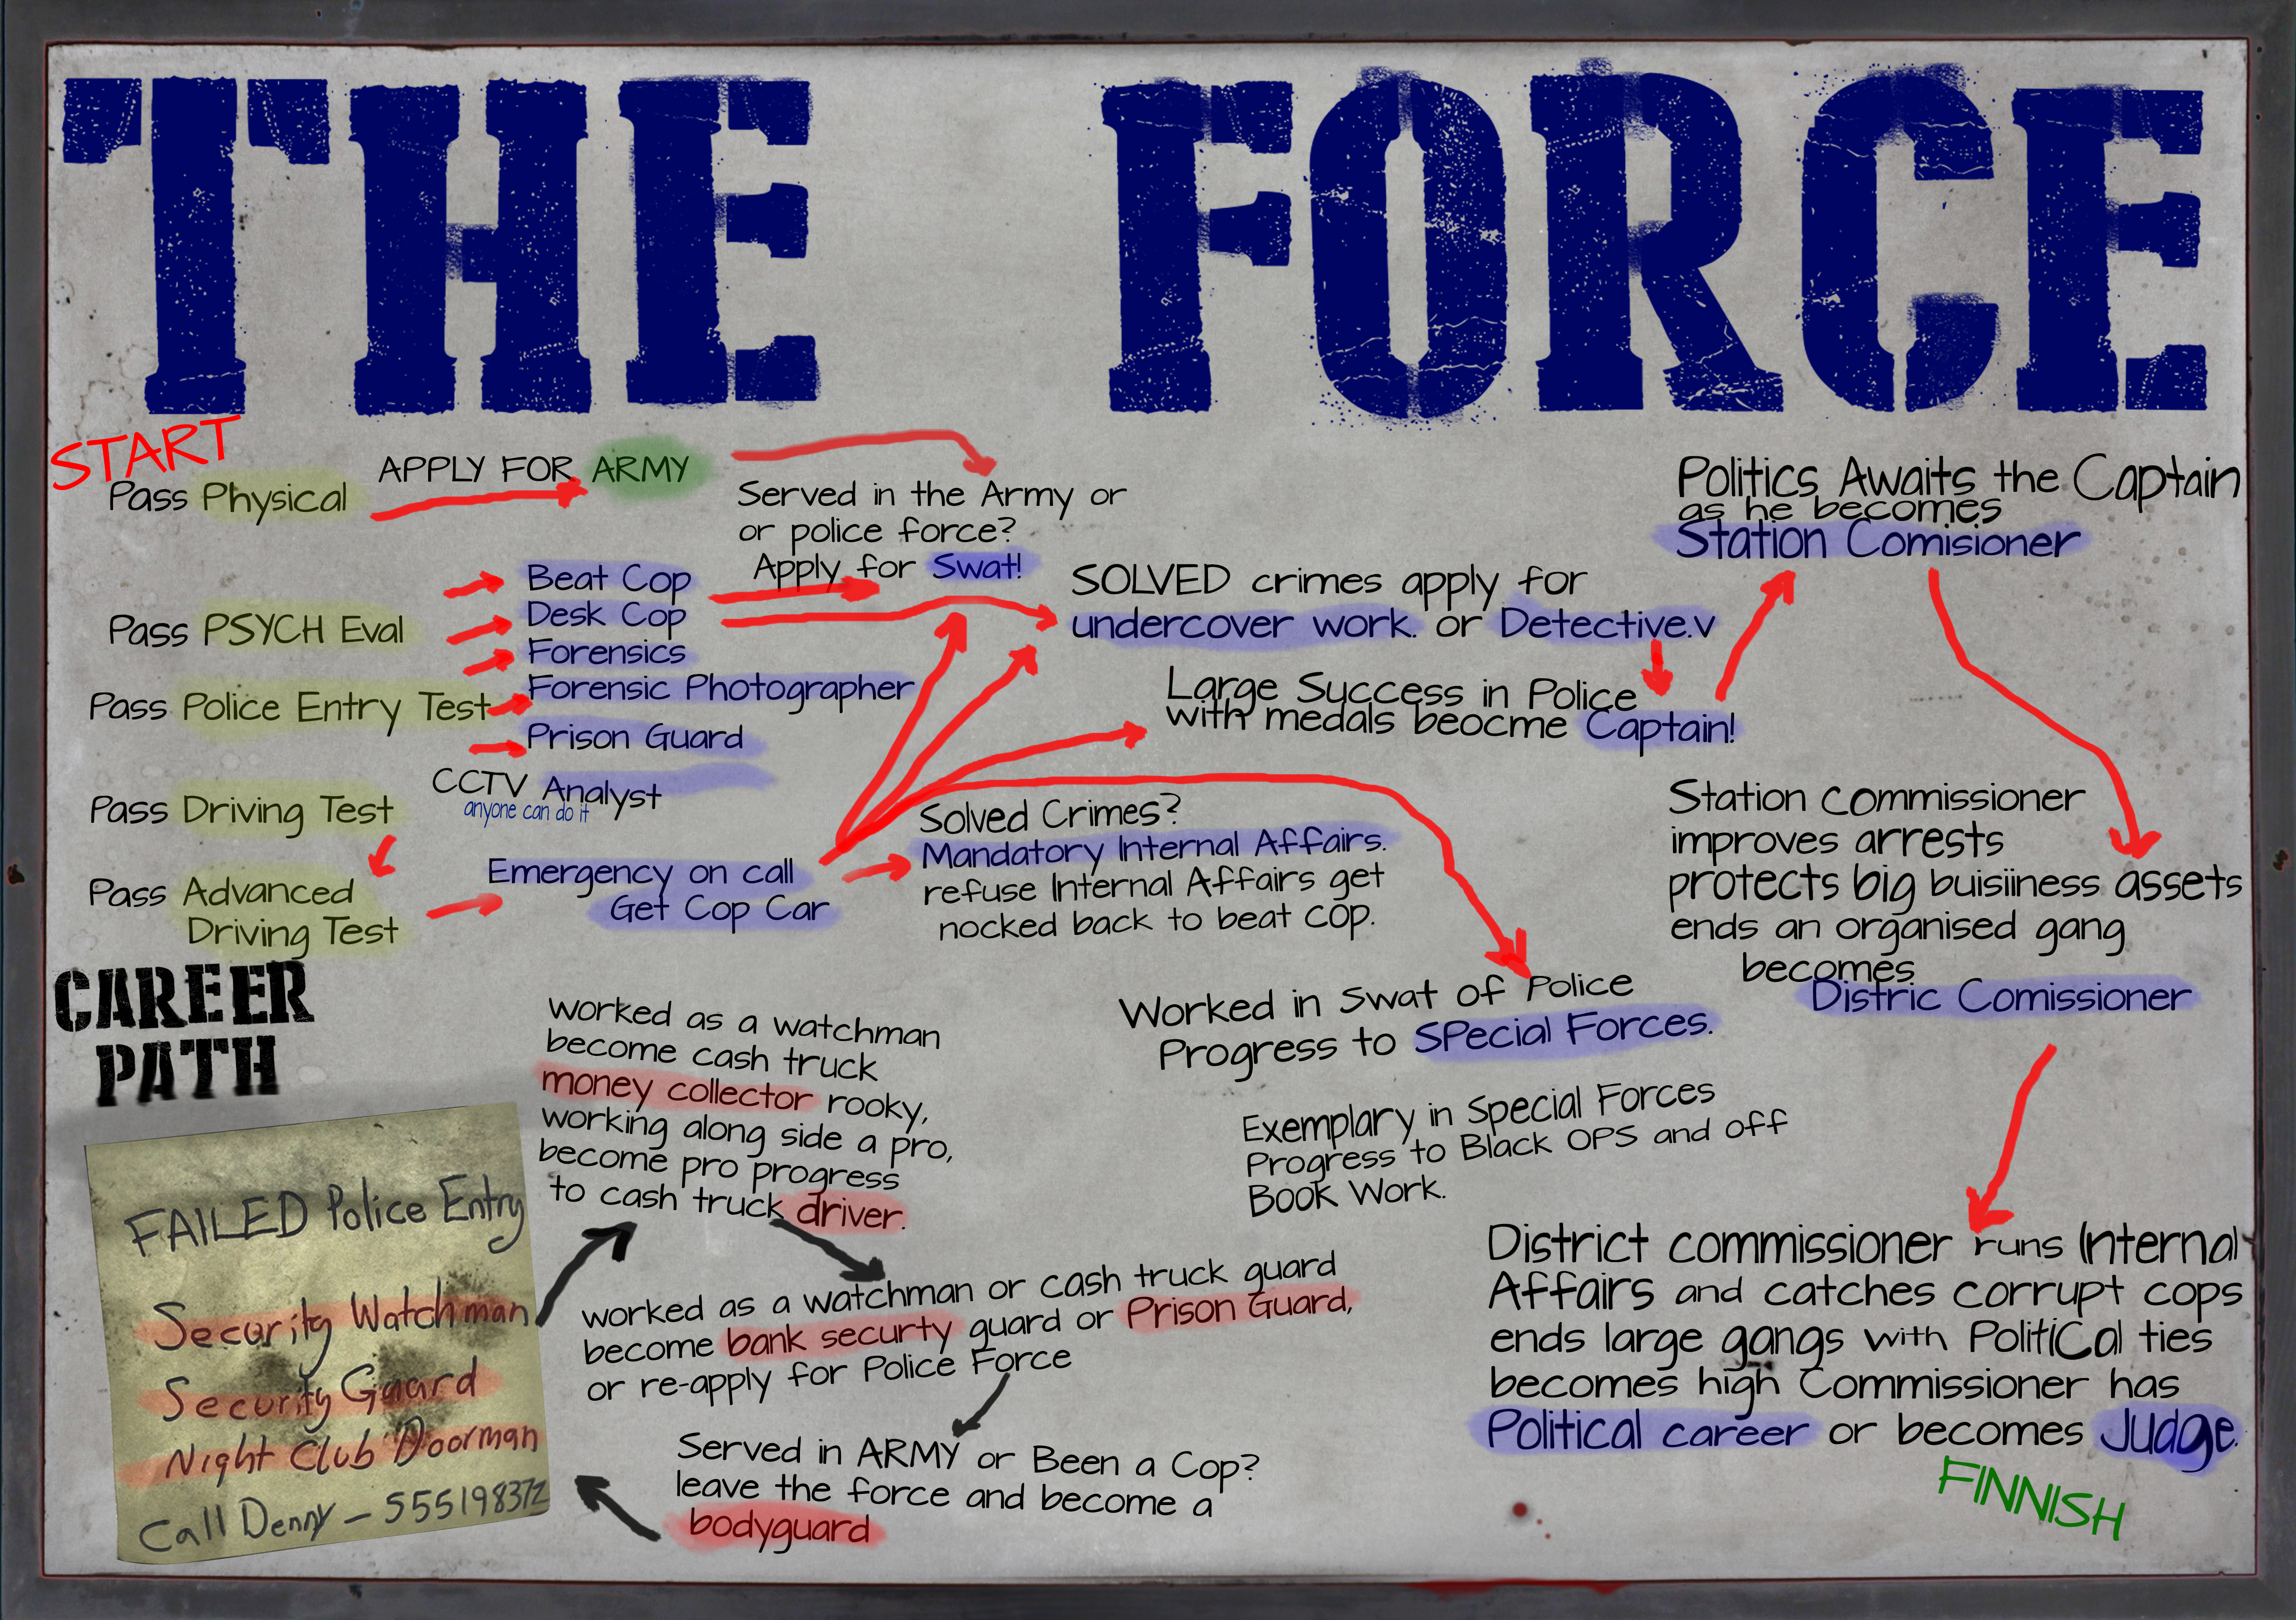 THE FORCE
START
Pass Physical
APPLY FOR ARMY
Served in the Army or
or police force?
Apply for Swat!
Pass PSYCH Eval
Pass Police Entry Test
Pass Driving Test
Pass Advanced
Driving Test
Beat Cop
Desk Cop
Forensics
Forensic Photographer
Prison Guard
CCTV Analyst
anyone can do it
Emergency on call
Get Cop Car
SOLVED crimes apply for
undercover work. or Detective.v
Large Success in Police
with medals beocme Captain!
Solved Crimes?
Mandatory Internal Affairs.
refuse Internal Affairs get
nocked back to beat cop.
Politics Awaits the Captain
as he becomes
Station Comisioner
Station commissioner
improves arrests
protects big buisiiness assets
ends an organised gang
becomes
Distric Comissioner
CAREER
PATH
Worked as a watchman
become cash truck
money collector rooky,
working along side a pro,
become pro progress
to cash truck driver.
Worked in Swat of Police
Progress to SPecial Forces.
Exemplary in Special Forces
Progress to Black OPS and off
Book Work.
FAILED Police Entry
Security Watchman
Security Guard
Night Club Doorman
Call Denny - 555198372
worked as a watchman or cash truck guard
become bank securty guard or Prison Guard,
or re-apply for Police Force
Served in ARMY or Been a Cop?
leave the force and become a
bodyguard
District commissioner runs Internal
Affairs and catches corrupt cops
ends large gangs with Political ties
becomes high Commissioner has
Political career or becomes Judge.
FINNISH